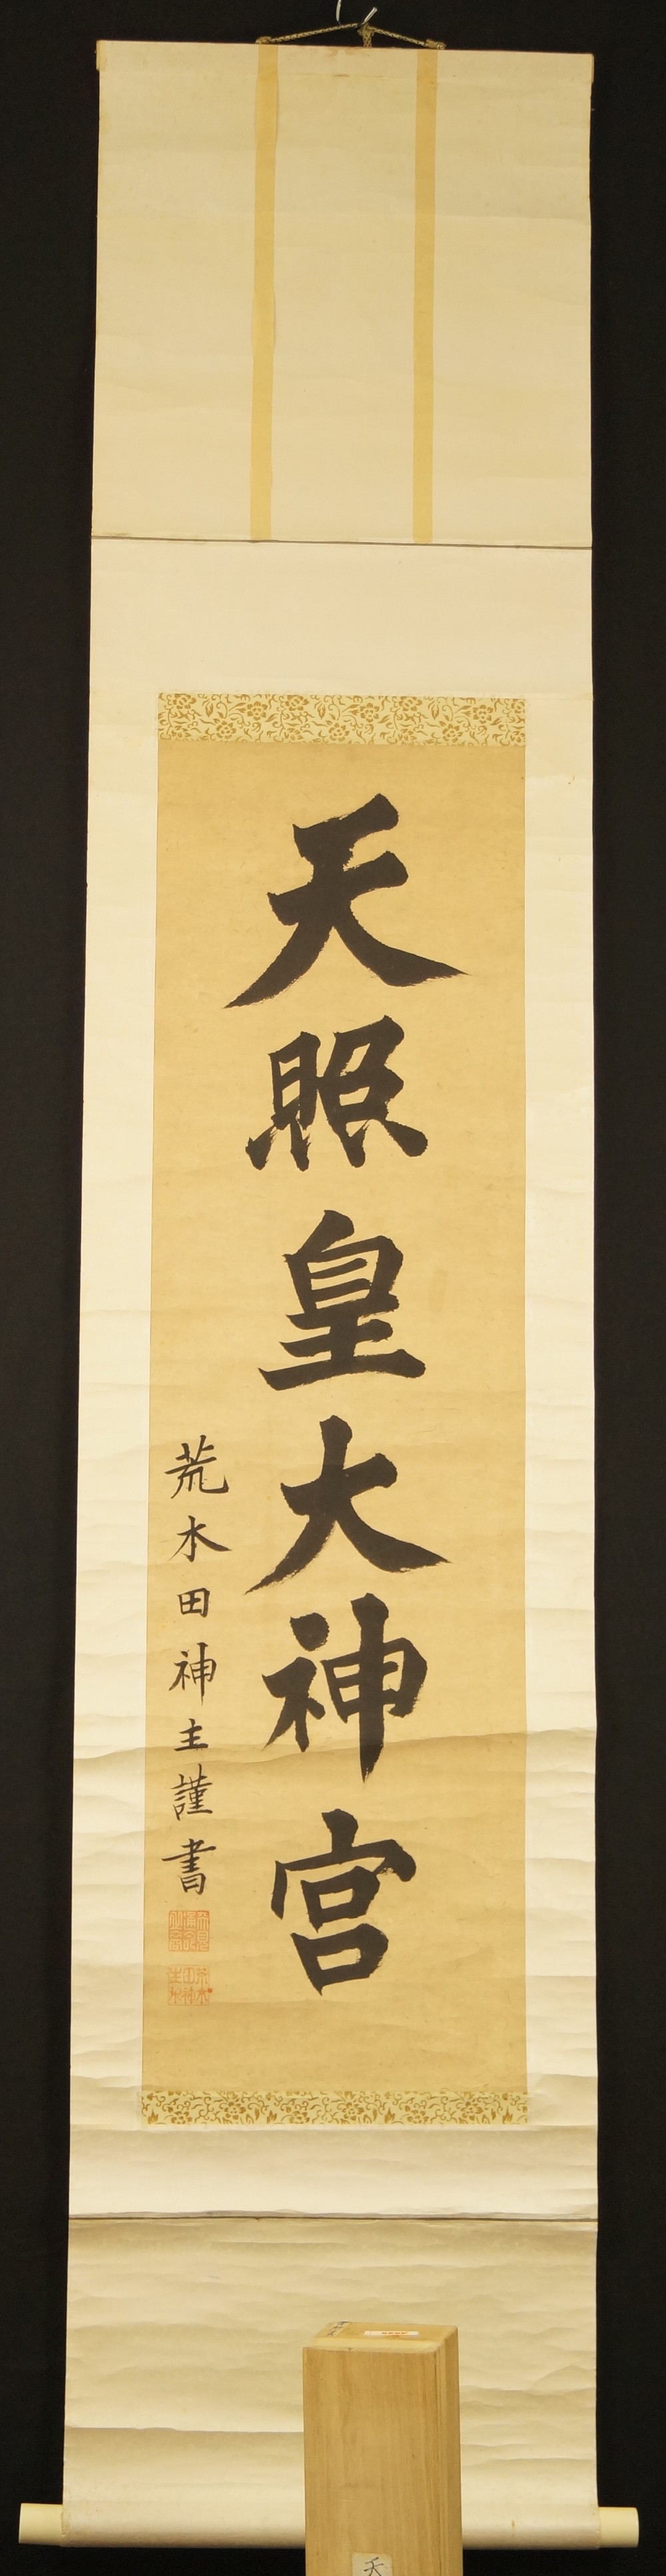 天照皇大神宮
荒木田神主謹書
天